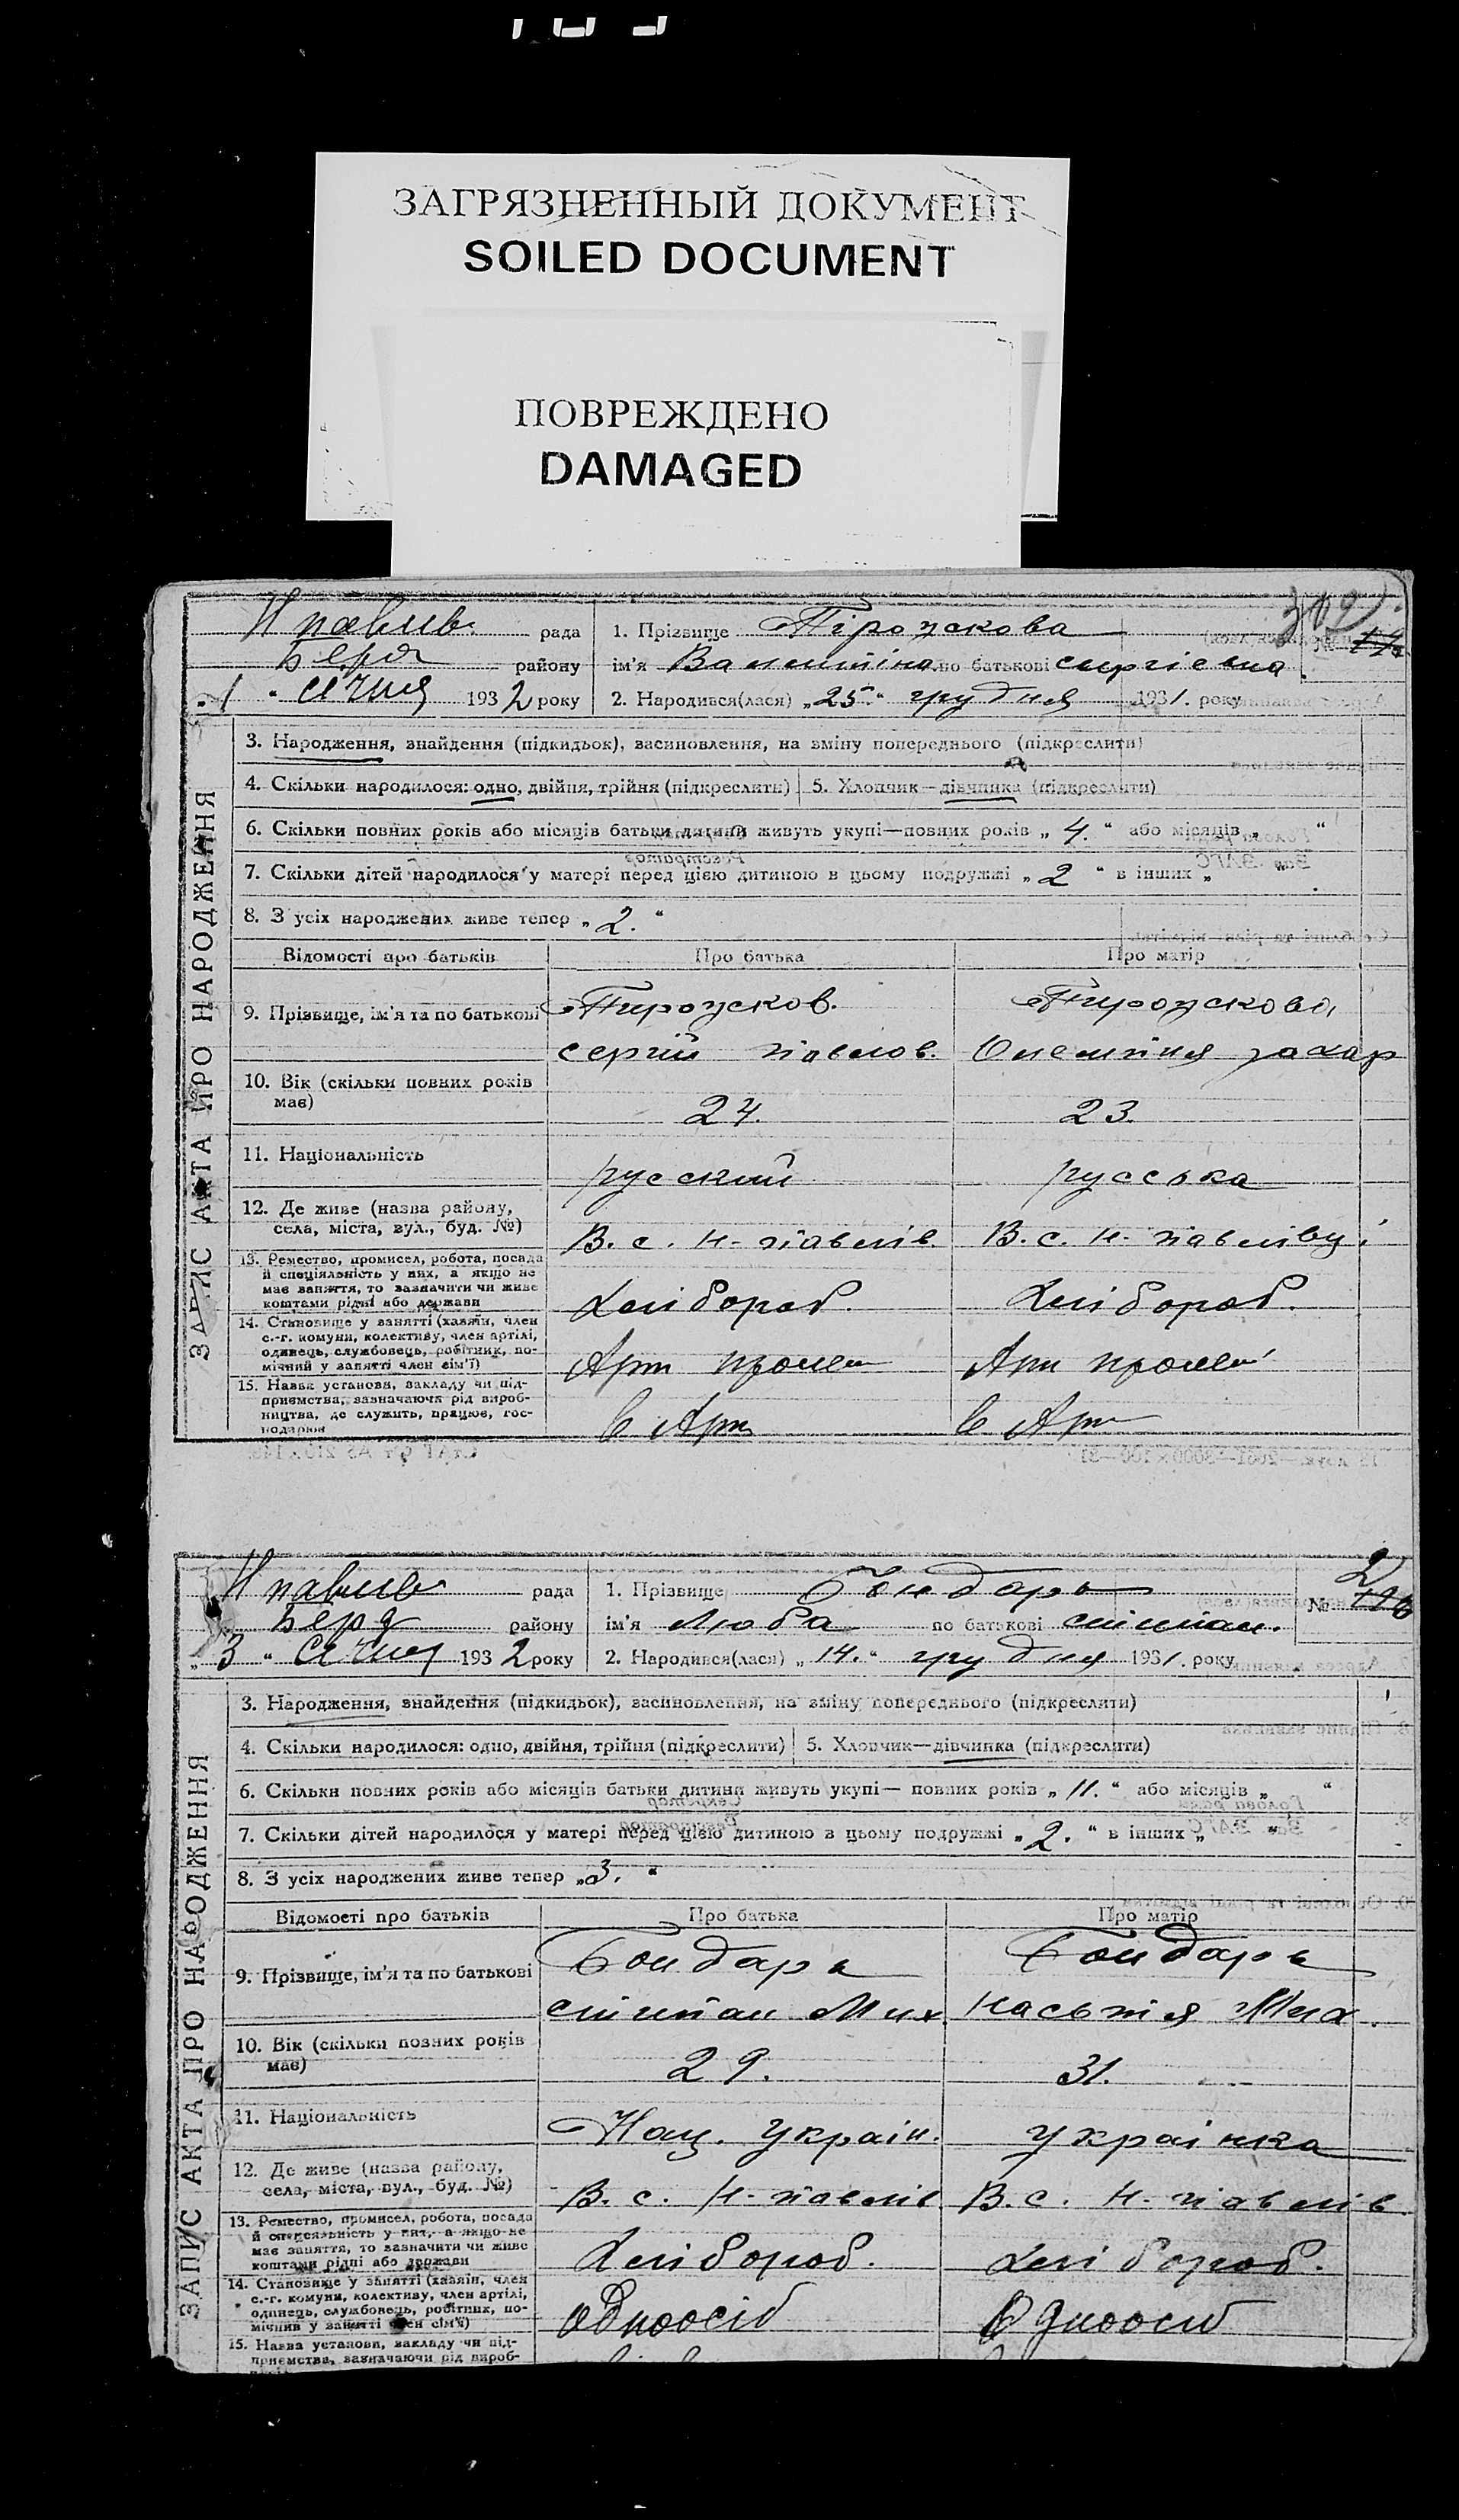 ЗАГРЯЗНЕННЫЙ ДОКУМЕНТ
SOILED DOCUMENT
ПОВРЕЖДЕНО
DAMAGED
ЗАПИС АКТА ПРО НАРОДЖЕННЯ
Н павлів. рада
Берд району
"1" січня 1932 року
1. Прізвище Пірожкова
ім'я Валентіна по батькові сиргіевна.
2. Народився(лася) "25" грудня 1931. року
3. Народження, знайдення (підкидьок), васиновлення, на зміну попереднього (підкреслити)
4. Скільки народилося: одно, двійня, трійня (підкреслити) 5. Хлопчик—дівчинка (підкреслити)
6. Скільки повних років або місяців батьки дитини живуть укупі—повних років "4." або місяців " "
7. Скільки дітей народилося у матері перед цією дитиною в цьому подружжі "2" в інших " "
8. З усіх народжених живе тепер "2."
Відомості про батьків Про батька Про матір
9. Прізвище, ім'я та по батькові Пирожков. Пирожкова,
сергий павлов. захар
10. Вік (скільки повних років має) 24. 23.
11. Національність русский русська
12. Де живе (назва району, села, міста, вул., буд. №) В. с. Н-павлів. В. с. Н-павлівці
13. Ремество, промисел, робота, посада й специяльність у них, а якщо не має заняття, то зазначити чи живе коштами рідні або держави Хліbороб. Хлібороб.
14. Становище у занятті (хазяїн, член с.-г. комуни, колективу, член артілі, одинець, службовець, робітник, помічний у занятті член сім'ї) Арт Арт
15. Назва установи, закладу чи підприємства, зазначаючи рід виробництва, де служить, працює, господарює в Арт в Арт
ЗАПИС АКТА ПРО НАРОДЖЕННЯ
Н павлів рада
Берд району
"3" січня 1932 року
1. Прізвище Бондарь
ім'я Люба по батькові стіпан.
№ 2
2. Народився(лася) "14." грудня 1931. року
3. Народження, знайдення (підкидьок), васиновлення, на зміну попереднього (підкреслити)
4. Скільки народилося: одно, двійня, трійня (підкреслити) 5. Хлопчик—дівчинка (підкреслити)
6. Скільки повних років або місяців батьки дитини живуть укупі— повних років "11." або місяців " "
7. Скільки дітей народилося у матері перед цією дитиною в цьому подружжі "2." в інших " "
8. З усіх народжених живе тепер "3."
Відомості про батьків Про батька Про матір
9. Прізвище, ім'я та по батькові Бондарь Бондарь
стіпан Мих. Настія Мих.
10. Вік (скільки повних років має) 29. 31.
11. Національність Нац. Україн. українка
12. Де живе (назва району, села, міста, вул., буд. №) В. с. Н-павлів В. с. Н-павлів
13. Ремество, промисел, робота, посада й специяльність у них, а якщо не має заняття, то зазначити чи живе коштами рідні або держави Хлібороб. Хлібороб.
14. Становище у занятті (хазяїн, член с.-г. комуни, колективу, член артілі, одинець, службовець, робітник, помічний у занятті член сім'ї) Одноосіб Одноосіб
15. Назва установи, закладу чи підприємства, зазначаючи рід вироб-